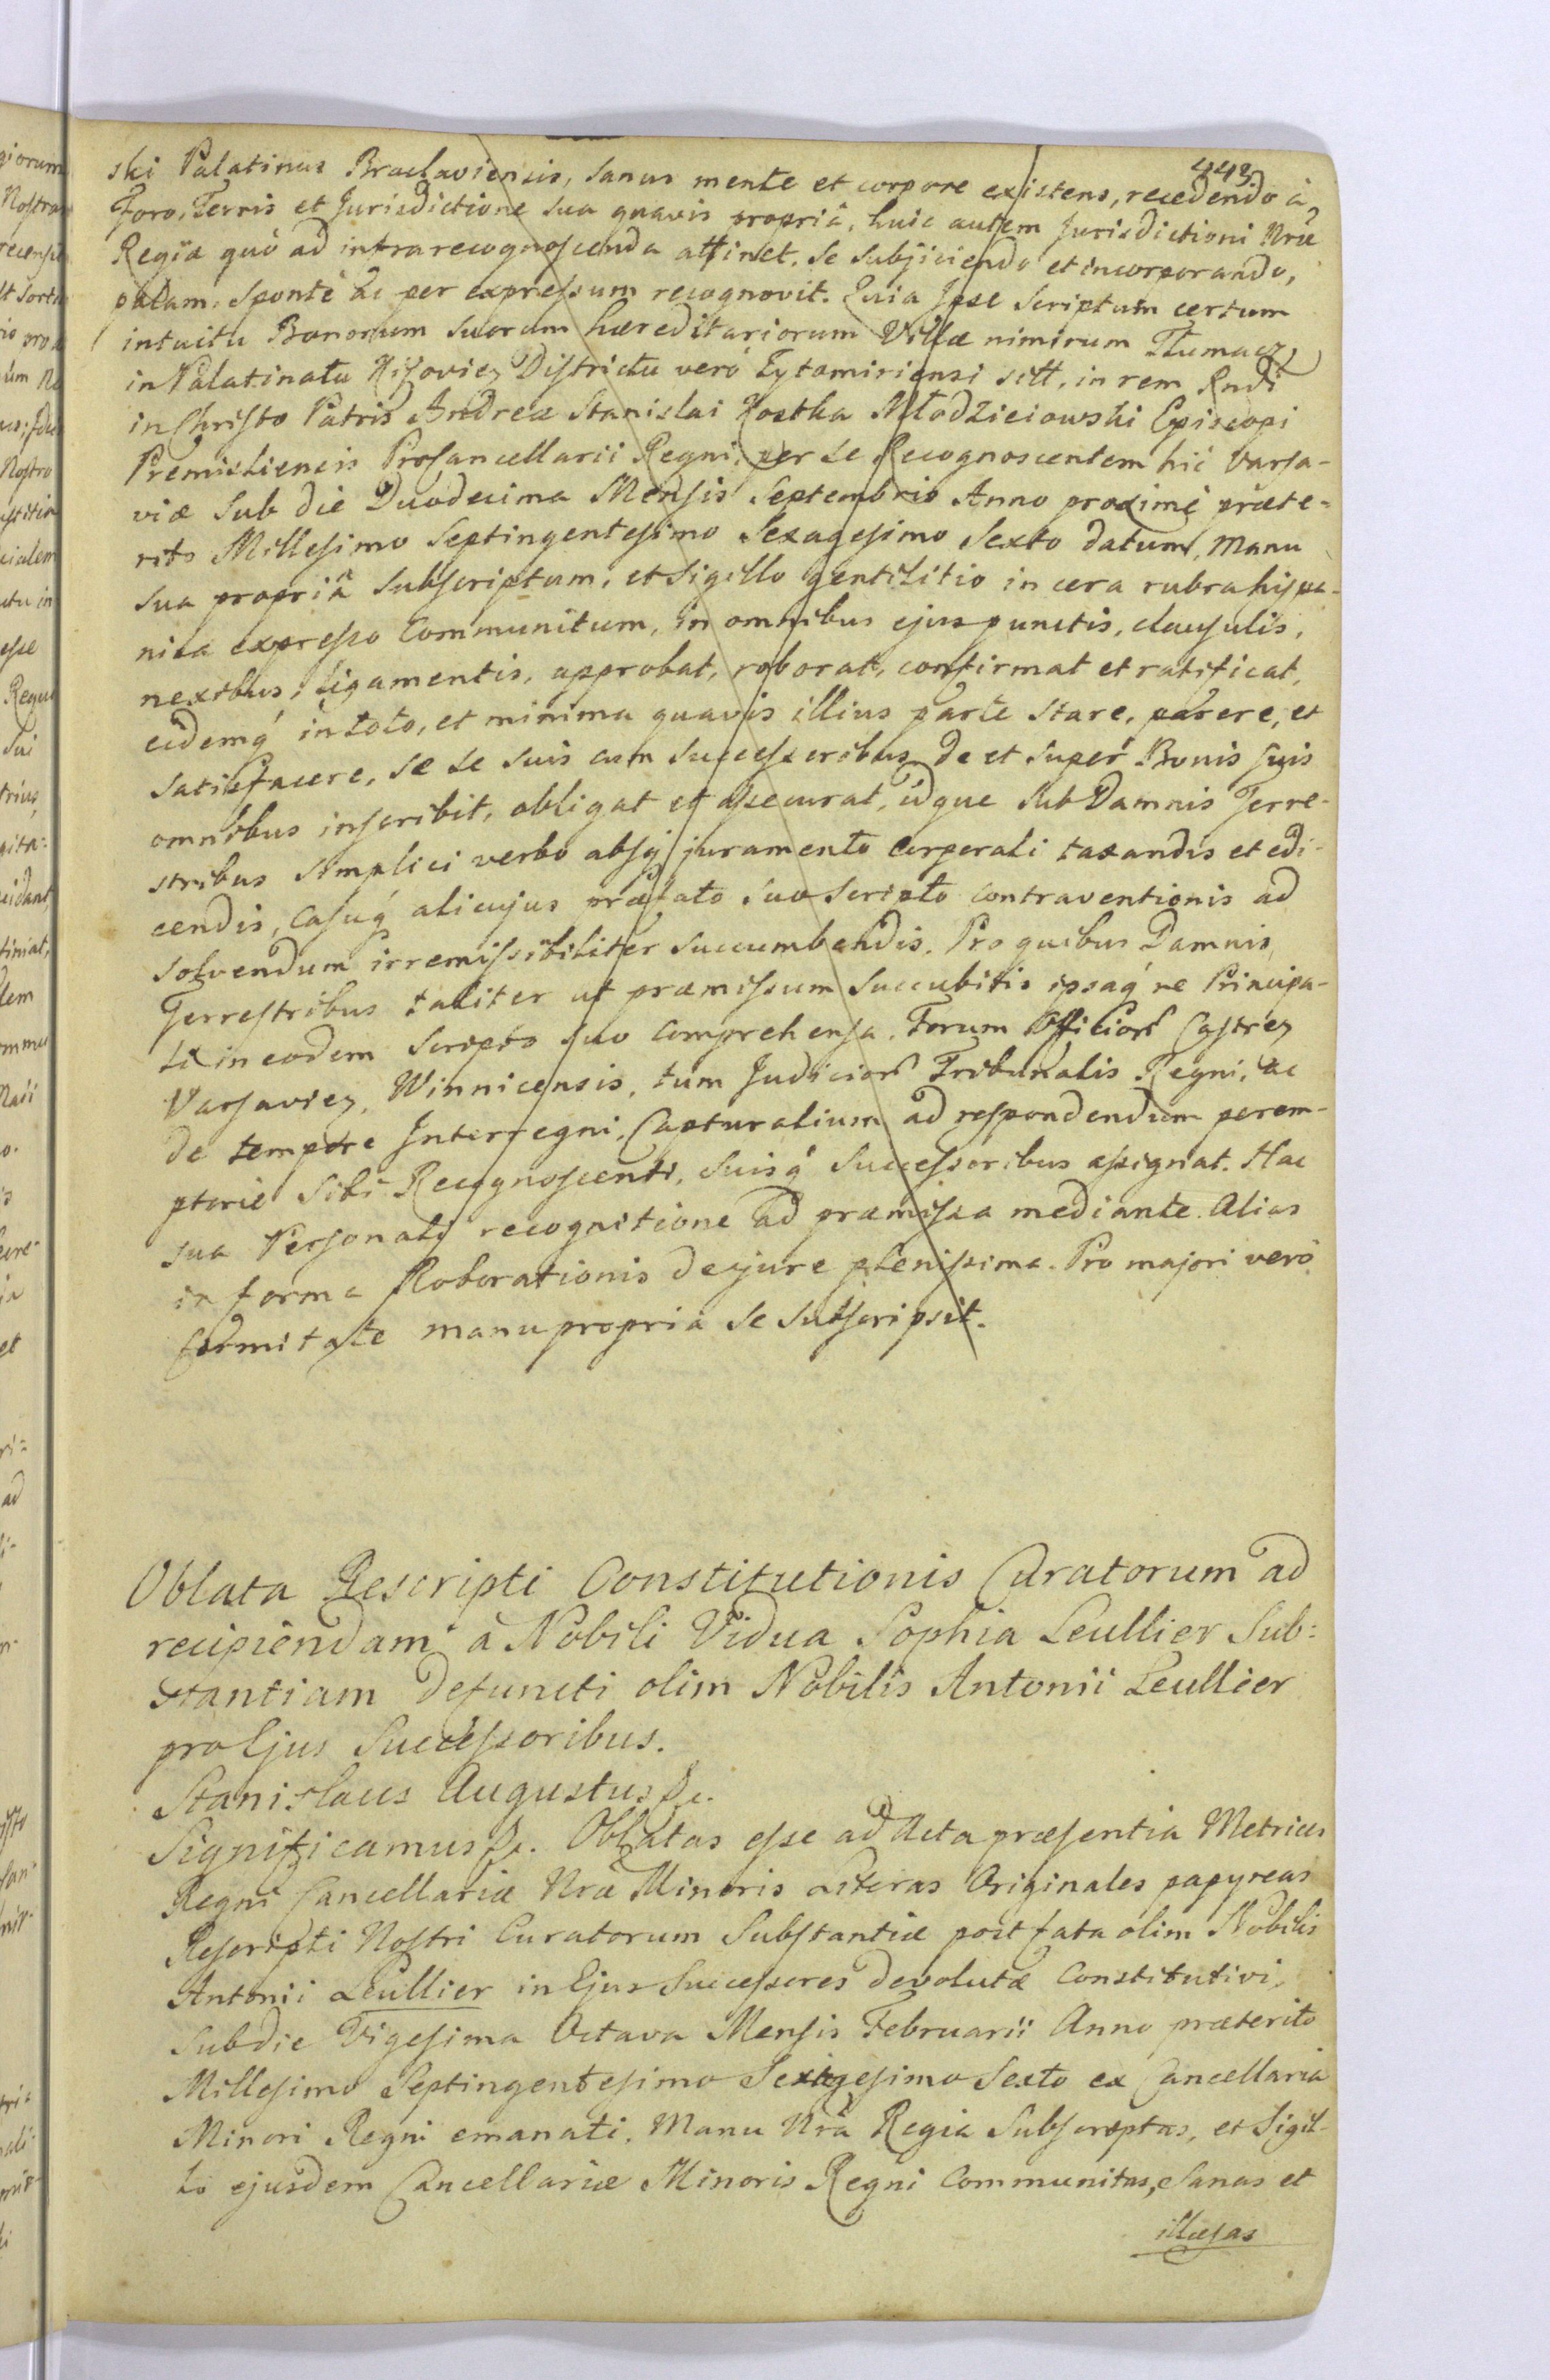 443.
ski Palatinus Braclaviensis, Sanus mente et corpore existens, recedendo à
Foro, Terris et Jurisdictione sua quavis propriâ, huic autem Jurisdictioni Nræ
Regiæ quò ad infrarecognoscenda attinet, se subjiciendo et incorporando,
palam, sponte ac per expressum recognovit. Quia Ipse Scriptum certum
intuitu Bonorum suorum hæreditariorum Villæ nimirum Tłumacz
in Palatinatu Kijovien Districtu verò Zytomiriensi sitt, in rem Rndi
in Christo Patris Andreæ Stanislai Kostka Młodzieiowski Episcopi
Premisliensis Procancellarii Regni, per se Recognoscentem hic Varsa-
viæ Sub die Duodecima Mensis Septembris Anno proxime præte-
rito Millesimo Septingentesimo Sexagesimo Sexto datum, Manu
sua propriâ Subscriptum, et Sigillo gentilitio in cera rubra hispa-
nica expresso Communitum, in omnibus ejus punctis, clausulis,
nexibus, ligamentis, approbat, roborat, confirmat et ratificat,
eidemq́ in toto, et minima quavis illius parte stare, parere, et
satisfacere, se se suis cum Successoribus de et super Bonis suis
omnibus inscribit, obligat et assecurat, idque Sub Damnis Terre-
stribus simplici verbo absq́ juramento corporali taxandis et edi-
cendis, casuq́ alicujus præfato suo Scripto contraventionis ad
solvendum irremissibiliter succumbendis. Pro quibus Damnis,
Terrestribus taliter ut præmissum Succubitis ipsaq́ re Principa-
li in eodem Scripto suo comprehensa. Forum Officior Castren
Varsavien, Winnicensis, tum Judicior Tribunalis Regni, ac
de tempore Interregni, Capturalium ad respondendum perem-
ptorie sibi Recognoscenti, suisq́ Successoribus assignat. Hac
sua Personali recognitione ad præmissa mediante. Alias
in forma Roborationis de jure plenissima. Pro majori verò
firmitate manu propria se subscripsit.
Oblata Rescripti Constitutionis Curatorum ad
recipiendam à Nobili Vidua Sophia Leullier Sub-
stantiam defuncti olim Nobilis Antonii Leullier
pro Ejus Successoribus.
Stanislaus Augustus &c.
Significamus &c. Oblatas esse ad Acta præsentia Metrices
Regni Cancellariæ Nræ Minoris Literas Originales papyreas
Rescripti Nostri Curatorum Substantiæ post fata olim Nobilis
Antonii Leullier in Ejus Successores devolutæ Constitutivi,
sub die Vigesima Octava Mensis Februarii Anno præterito
Millesimo Septingentesimo Sexagesimo Sexto ex Cancellaria
Minori Regni emanati, Manu Nrâ Regia Subscriptas, et Sigil-
lo ejusdem Cancellariæ Minoris Regni Communitas, Sanas et
illæsas